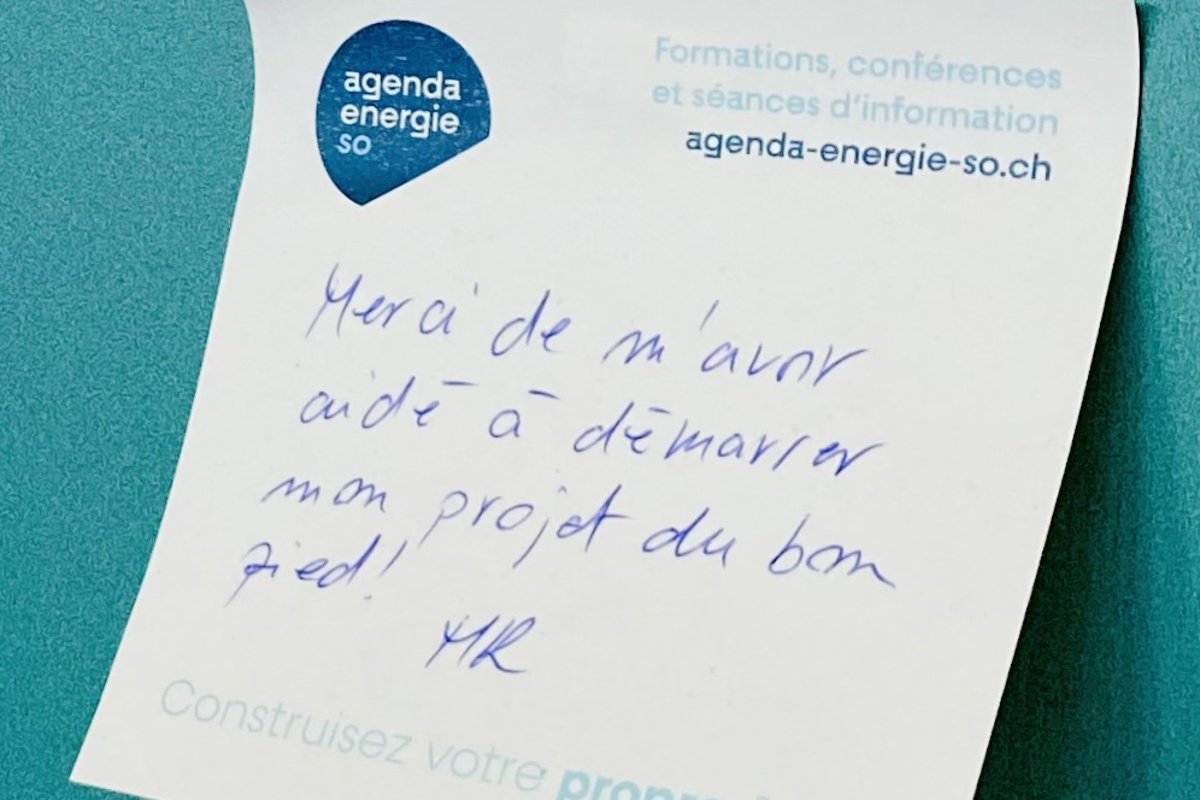 agenda
energie
so
Formations, conférences
et séances d'information
agenda-energie-so.ch
Merci de m'avoir
aidé à démarrer
mon projet du bon
pied!
MR
Construisez votre